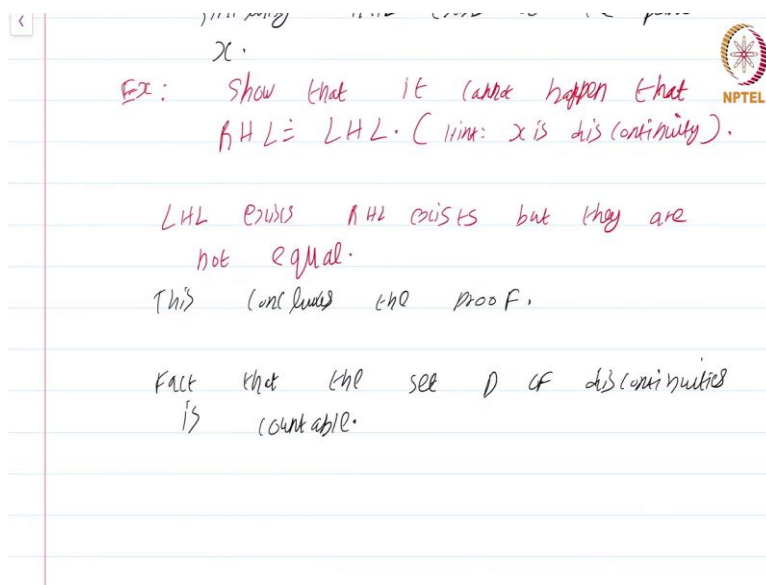 x.
Ex: Show that it cannot happen that
RHL = LHL. (Hint: x is discontinuity).
NPTEL
LHL exists RHL exists but they are
not equal.
This concludes the proof.
Fact that the set D of discontinuities
is countable.